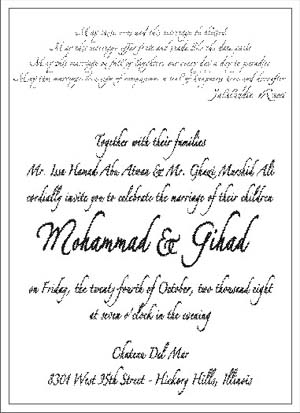 May these vows and this marriage be blessed.
May this marriage offer fruit and shade like the date palm.
May this marriage be full of laughter, our every day a day in paradise.
May this marriage be a sign of compassion, a seal of happiness here and hereafter
Jalaluddin Rumi
Together with their families
Mr. Issa Hamad Abu Atwan & Mr. Ghazi Murshid Ali
cordially invite you to celebrate the marriage of their children
Mohammad & Gihad
on Friday, the twenty fourth of October, two thousand eight
at seven o'clock in the evening
Chateau Del Mar
8301 West 35th Street - Hickory Hills, Illinois